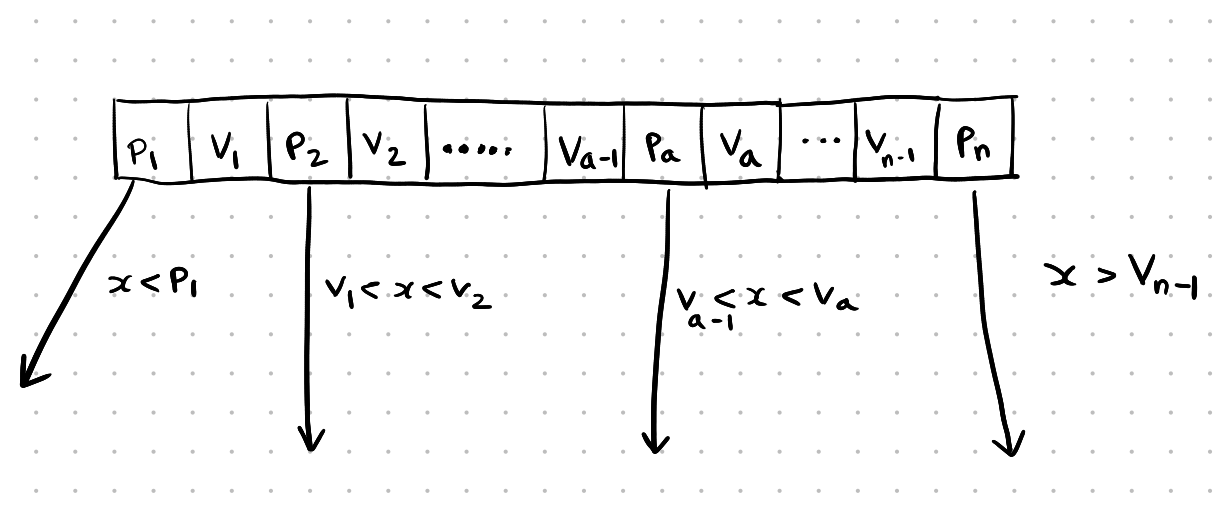 P₁ V₁ P₂ V₂ ..... Vₐ₋₁ Pₐ Vₐ ... Vₙ₋₁ Pₙ
x < P₁ V₁ < x < V₂ Vₐ₋₁ < x < Vₐ x > Vₙ₋₁